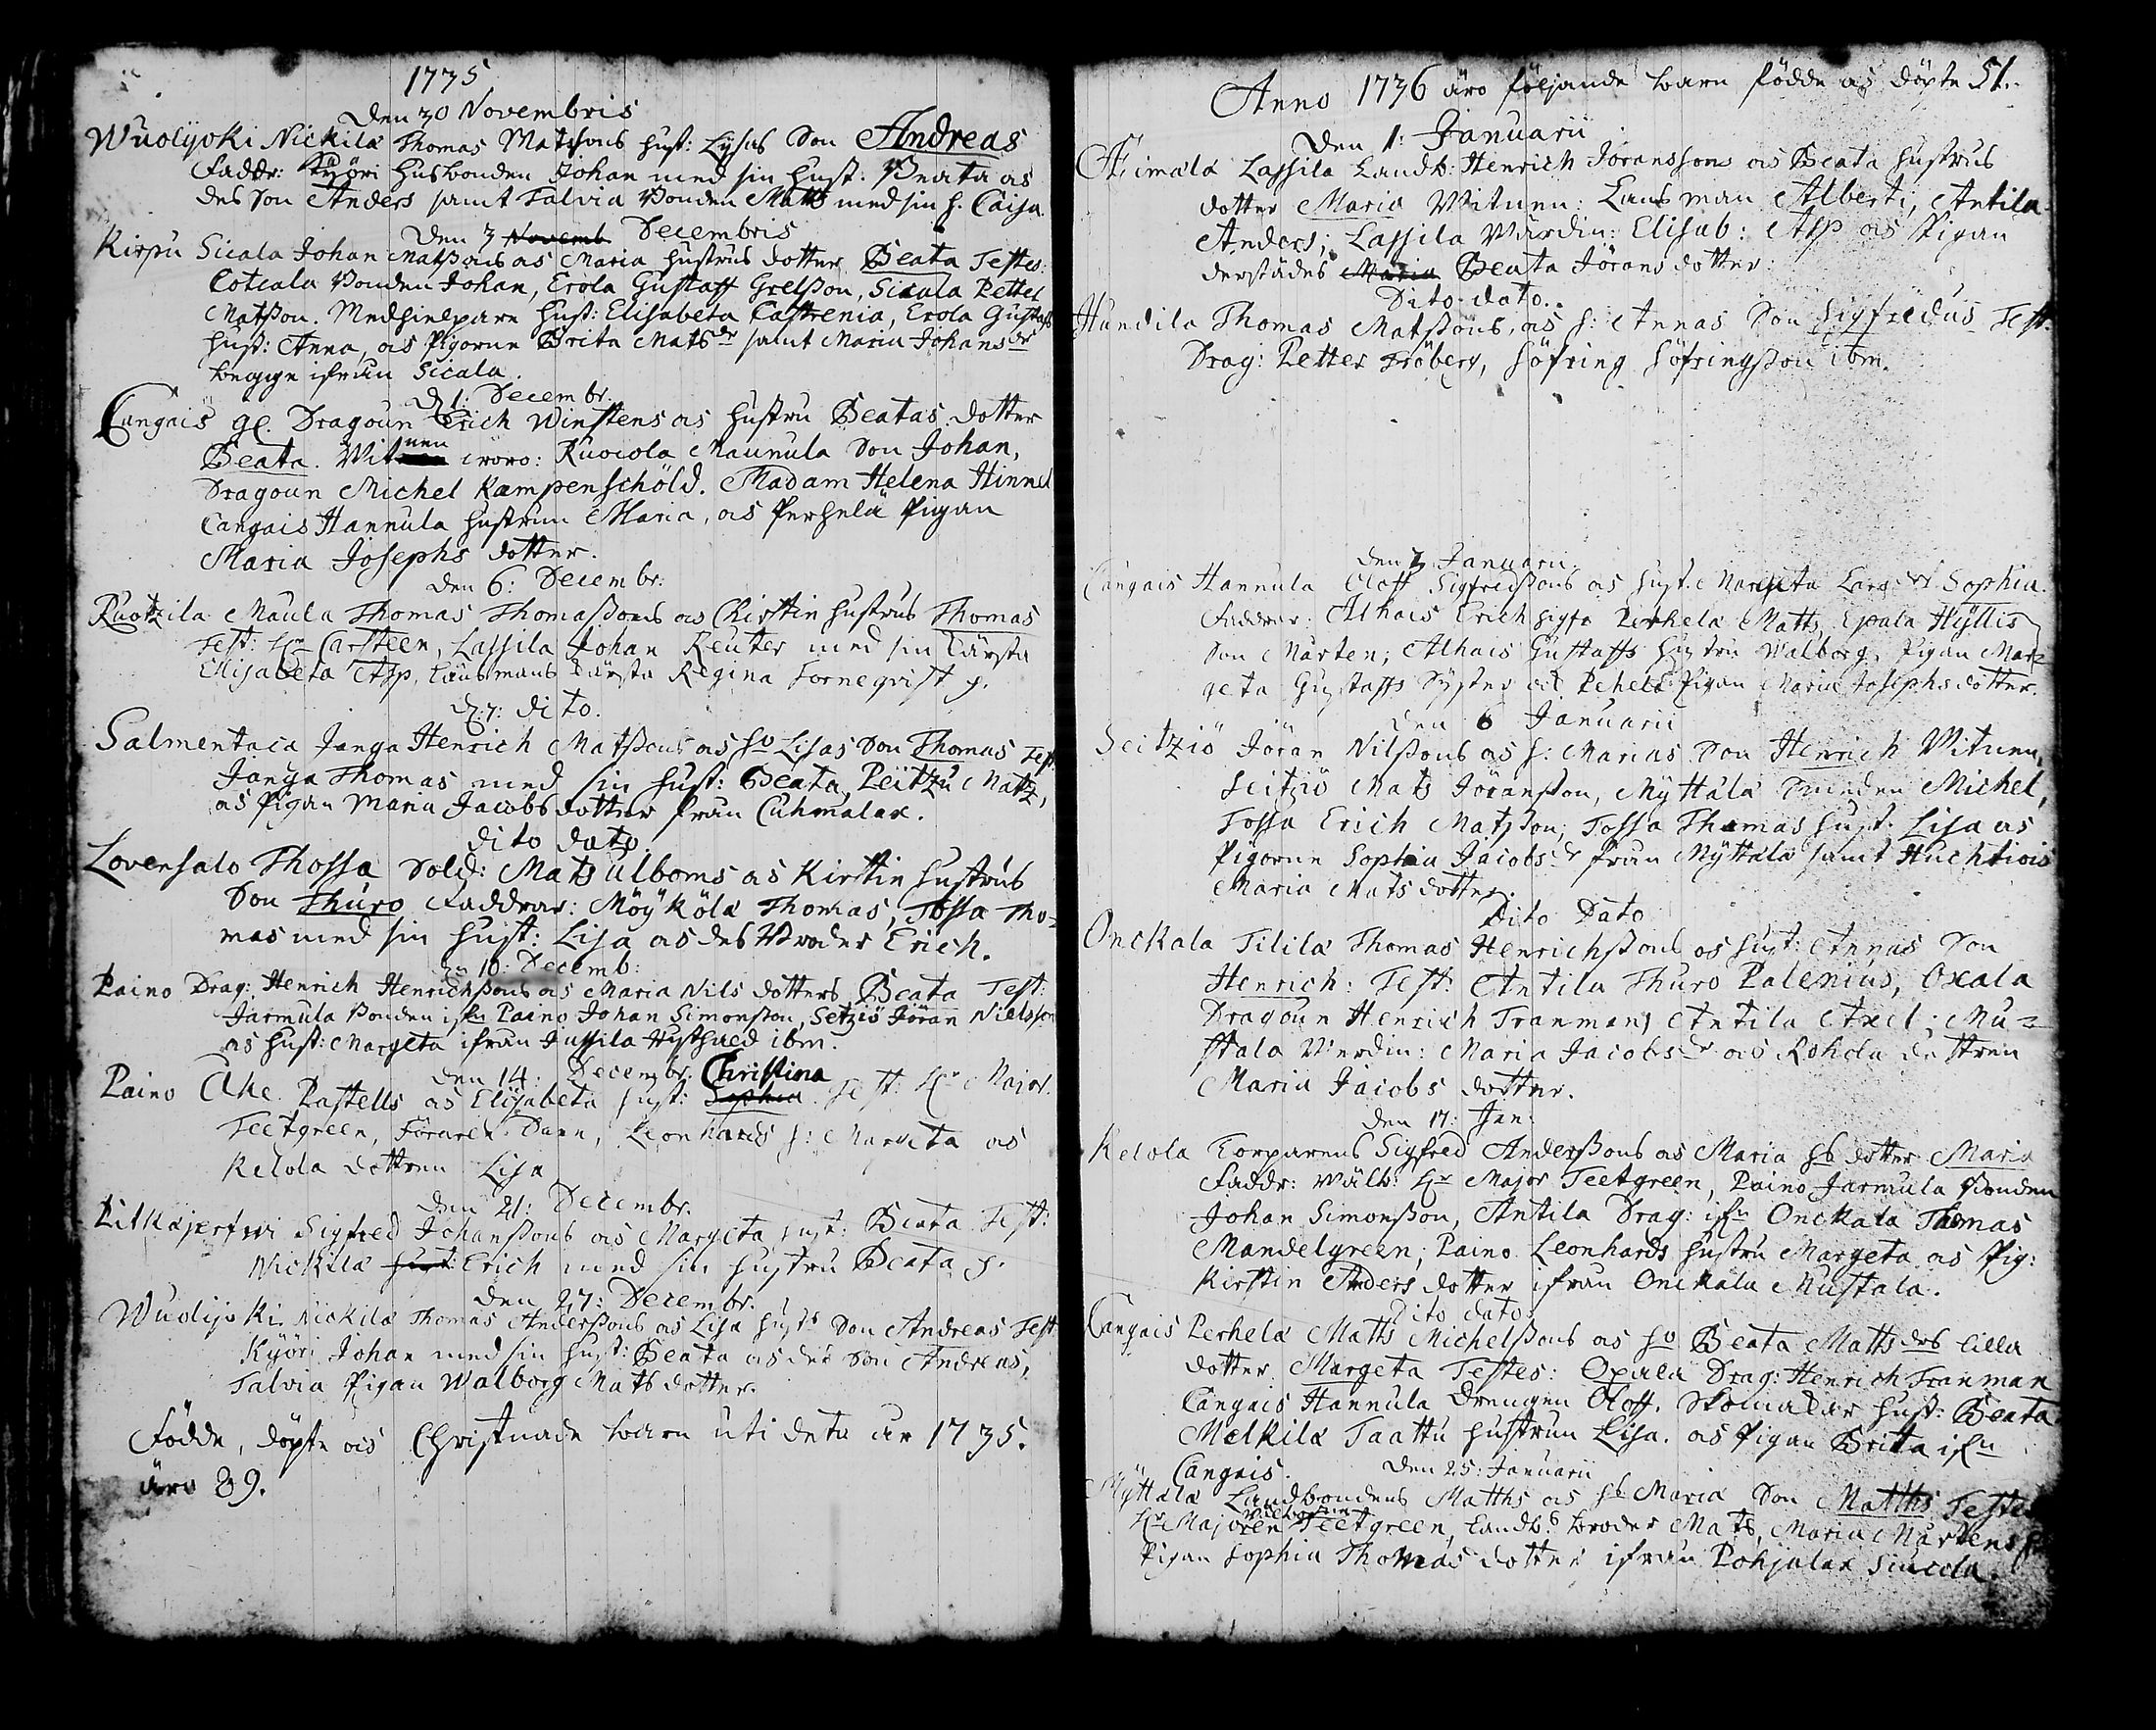 1735
Den 30 Novembris
Wuolijoki Nickilä Thomas Matssons hust: Lysas Son Andreas
Faddr: Kyöri Husbonden Johan med sin hust. Beata och
des Son Anders samt Talvia Bonden Matts med sin h. Caisa
Den 3 Novemb Decembris
Kirpu Sicala Johan Matssons och Maria hustrus dotter Beata Testes:
Cotcala Bonden Johan, Erola Gustaff Grelsson, Sicala Petter
Matsson. Medhielpare hust: Elisabeta Castrenia, Erola Gustafs
hust: Anna, och Pigorne Brita Matsdr samt Maria Johansdr
begge ifrån Sicala.
D 1: Decembr.
Cangais gl. Dragoun Erich Winstens och hustru Beatas dotter
Beata. Witnen woro: Ruocola Maunula Son Johan,
Dragoun Michel Kampenschöld. Madam Helena Hinnel
Cangais Hannula hustrun Maria, och Perhelä Pigan
Maria Josephs dotter.
Den 6: Decembr:
Ruotzila Maula Thomas Thomassons och Kirstin hustrus Thomas
Test: Hr Carsteen, Lassila Johan Reuter med sin Kärsta
Elisabeta Asp, Länsmans Kärsta Regina Forneqvist p.
D. 7: dito.
Salmentaca Janga Henrich Matssons och ho Lisas Son Thomas Test:
Janga Thomas med sin hust: Beata, Peitzu Matz,
och Pigan Maria Jacobsdotter från Cuhmalax.
dito dato.
Lovensalo Thossa Sold: Mats Ulboms och Kirstin hustrus
Son Thuro Faddrar: Möyköla Thomas, Tossa Tho-
mas med sin hust: Lisa och des Broder Erich.
Dn 10: Decemb:
Paino Drag: Henrich Henrichssons och Maria Nils dotters Beata Test:
Jarmula Bonden ifrn Paino Johan Simonsson, Setziö Jöran Nielsson
och hust: Margeta ifrån Jussila Hysthued ibm.
Den 14: Decembr. Christina
Paino Ake Pastells och Elisabeta hust: Sophia. Test: Hr Major
Teetgreen, Föraren Dann, Leonhards h: Margeta och
Kelola dottren Lisa
Den 21: Decembr.
Pitkäjerfwi Sigfred Johanssons och Margeta hust: Beata Test:
Nickilä hust: Erich med sin hustru Beata p.
Den 27: Decembr.
Wuolijoki Nickilä Thomas Anderssons och Lisa husts Son Andreas Test
Kyöri Johan med sin hust: Beata och des Son Andreas,
Talvia Pigan Walborg Mats dotter.
Födde, döpte och Christnade barn uti detta år 1735.
äro 89.
Anno 1736 äro följande barn födde och döpte 51.
Den 1: Januarii
Heimala Lassila Landb: Henrich Joranssons och Beata hustrus
dotter Maria Witnen: Länsman Alberti, Antila
Anders; Lassila Wärdin: Elisab: Asp och Pigan
derstädes Maria Beata Jörans dotter.
Dito dato.
Hundila Thomas Matssons, och h: Annas Son Sigfredus Test.
Drag: Petter Fröberg, Höfring Höfringsson ibm.
Den 3 Januarii
Cangais Hannula Oloff Sigfredssons och hust. Margeta Larsdrs Sophia.
Faddrar: Alhais Erich Sigfr Perhelä Matts, Epala Hyllis
Son Mårten; Alhais Gustaffs hustru Walborg, Pigan Mar-
geta Gustaffs Syster och Pehelä Pigan Maria Josephsdotter.
Den 6 Januarii
Seitziö Jöran Nilssons och h: Marias Son Henrich Witnen,
Seitziö Mats Jöransson, Myttälä Michel,
Tossa Erich Matsson, Tossa Thomas hust: Lisa och
Pigorne Sophia Jacobsdr från Myttälä samt Huchtiois
Maria Matsdotter.
Dito Dato
Onckala Tililä Thomas Henrichssons och hust: Annas Son
Henrich: Test: Antila Thuro Palenius, Oxala
Dragoun Henrich Tranman, Antila Axel; Mu-
stala Werdin: Maria Jacobsdr och Rohola dottren
Maria Jacobs dotter.
Den 17: Jan:
Kelola Torparens Sigfred Anderssons och Maria hs dotter Maria
Faddr: Wälb: Hr Major Teetgreen, Paino Jarmula Bonden
Johan Simonsson, Antila Drag: ifrn Onckala Thomas
Mandelgreen; Paino Leonhards hustru Margeta och Pig:
Kirstin Anders dotter ifrån Onckala Mustala.
Dito dato:
Cangais Perhelä Matts Michelssons och ho Beata Matts drs lilla
dotter Margeta Testes: Oxala Drag: Henrich Tranman
Cangais Hannula Drengen Oloff. Skomakar hust: Beata
Melkilä Taattu hustrun Lisa. och Pigan Britta ifrn
Cangais.
Den 25: Januarii
Myttälä Landbondens Matths och hs Maria Son Matths Testes
Hr Majoren Wälborne Teetgreen, Landbs broder Mats, Maria Mårtens
Pigan Sophia Thomas dotter ifrån Pohjalax Siucola.